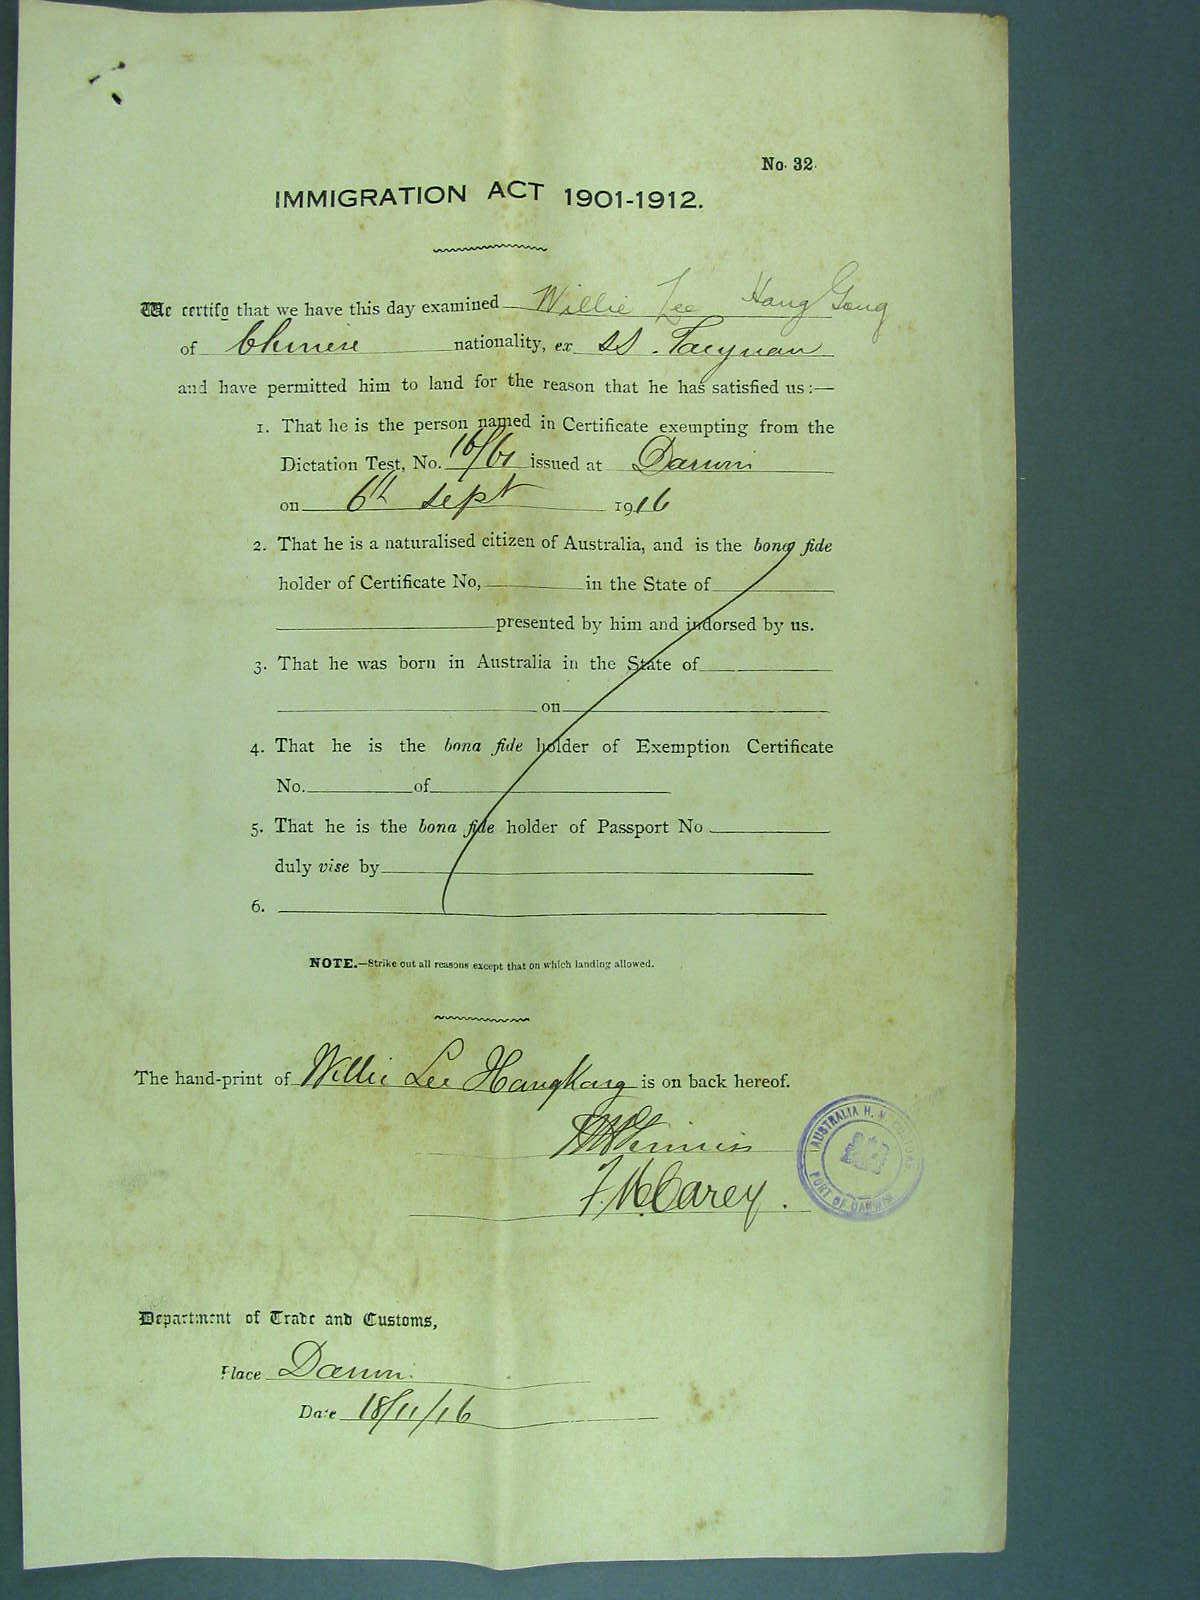 No. 32.
IMMIGRATION ACT 1901-1912.
We certify that we have this day examined Willie Lee Hang Gong
of Chinese nationality, ex SS. Taiyuan
and have permitted him to land for the reason that he has satisfied us:—
1. That he is the person named in Certificate exempting from the
Dictation Test, No. 16/61 issued at Darwin
on 6th Sept 1916
2. That he is a naturalised citizen of Australia, and is the bona fide
holder of Certificate No, in the State of
presented by him and indorsed by us.
3. That he was born in Australia in the State of
on
4. That he is the bona fide holder of Exemption Certificate
No. of
5. That he is the bona fide holder of Passport No
duly vise by
6.
NOTE.—Strike out all reasons except that on which landing allowed.
The hand-print of Willie Lee Hang Kong is on back hereof.
F. McCarey.
AUSTRALIA H. M. CUSTOMS
PORT OF DARWIN
Department of Trade and Customs,
Place Darwin.
Date 18/11/16